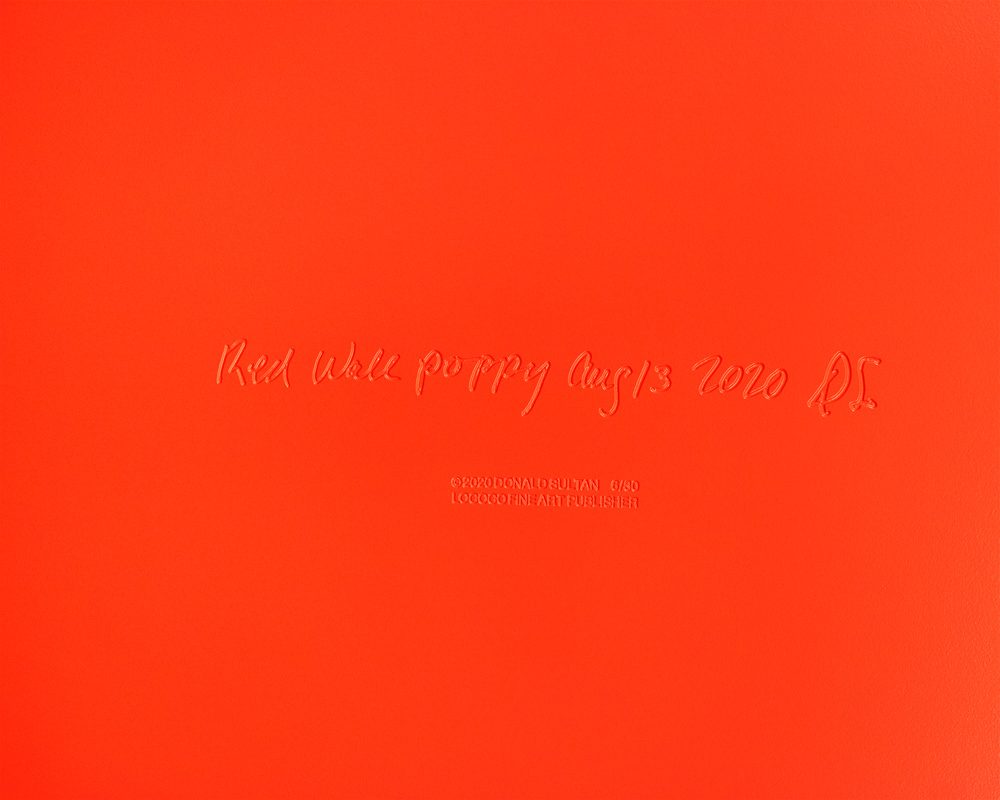 Red Wall poppy Aug 13 2020 DS
©2020 DONALD SULTAN 6/80
LOCOCO FINE ART PUBLISHER